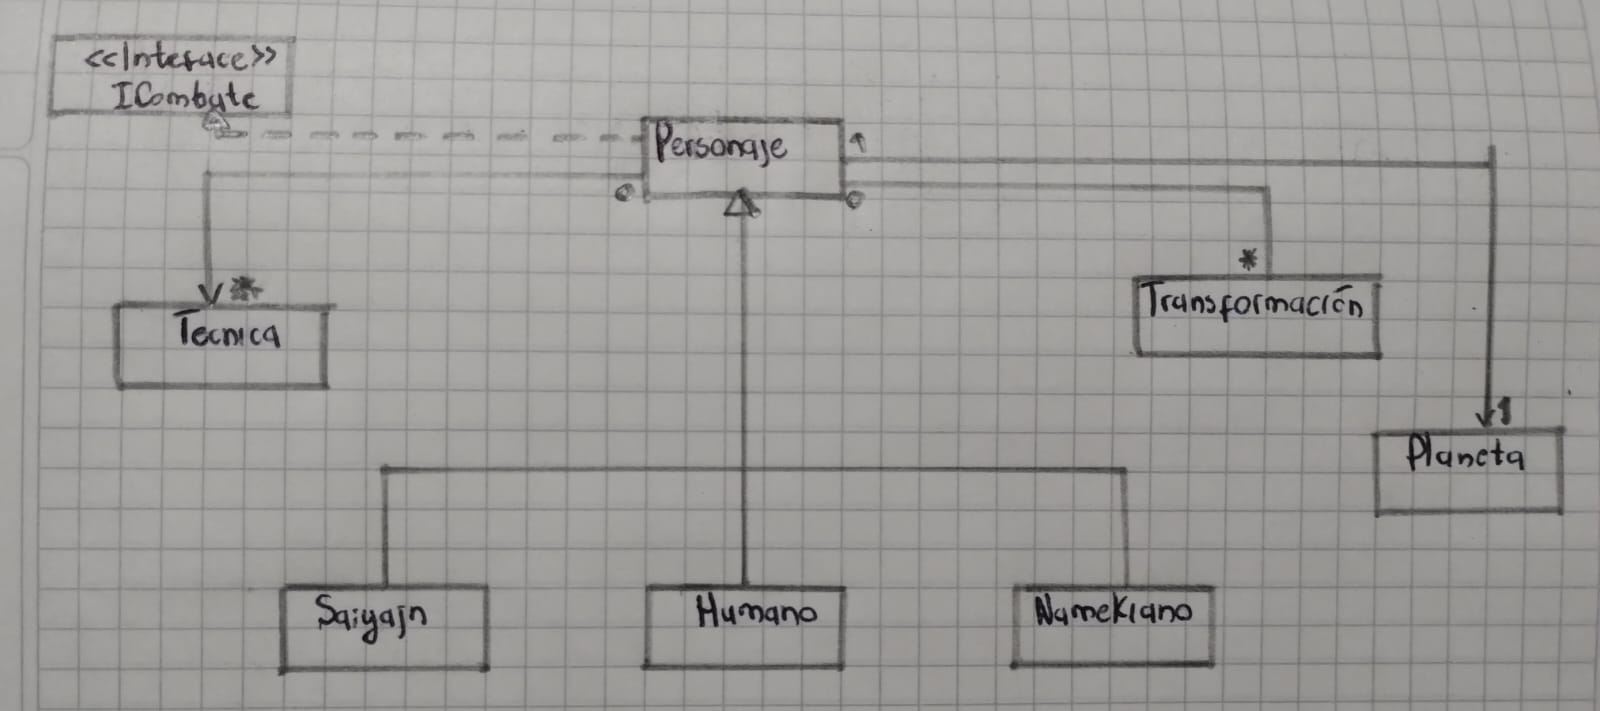 <<Interface>>
ICombate
Personaje
1
*
Tecnica
*
Transformación
1
Planeta
Saiyajn
Humano
Namekiano